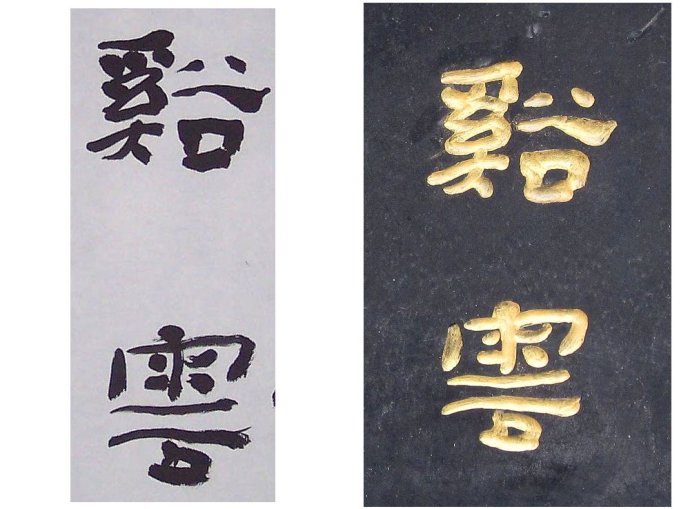 谿雲
谿雲